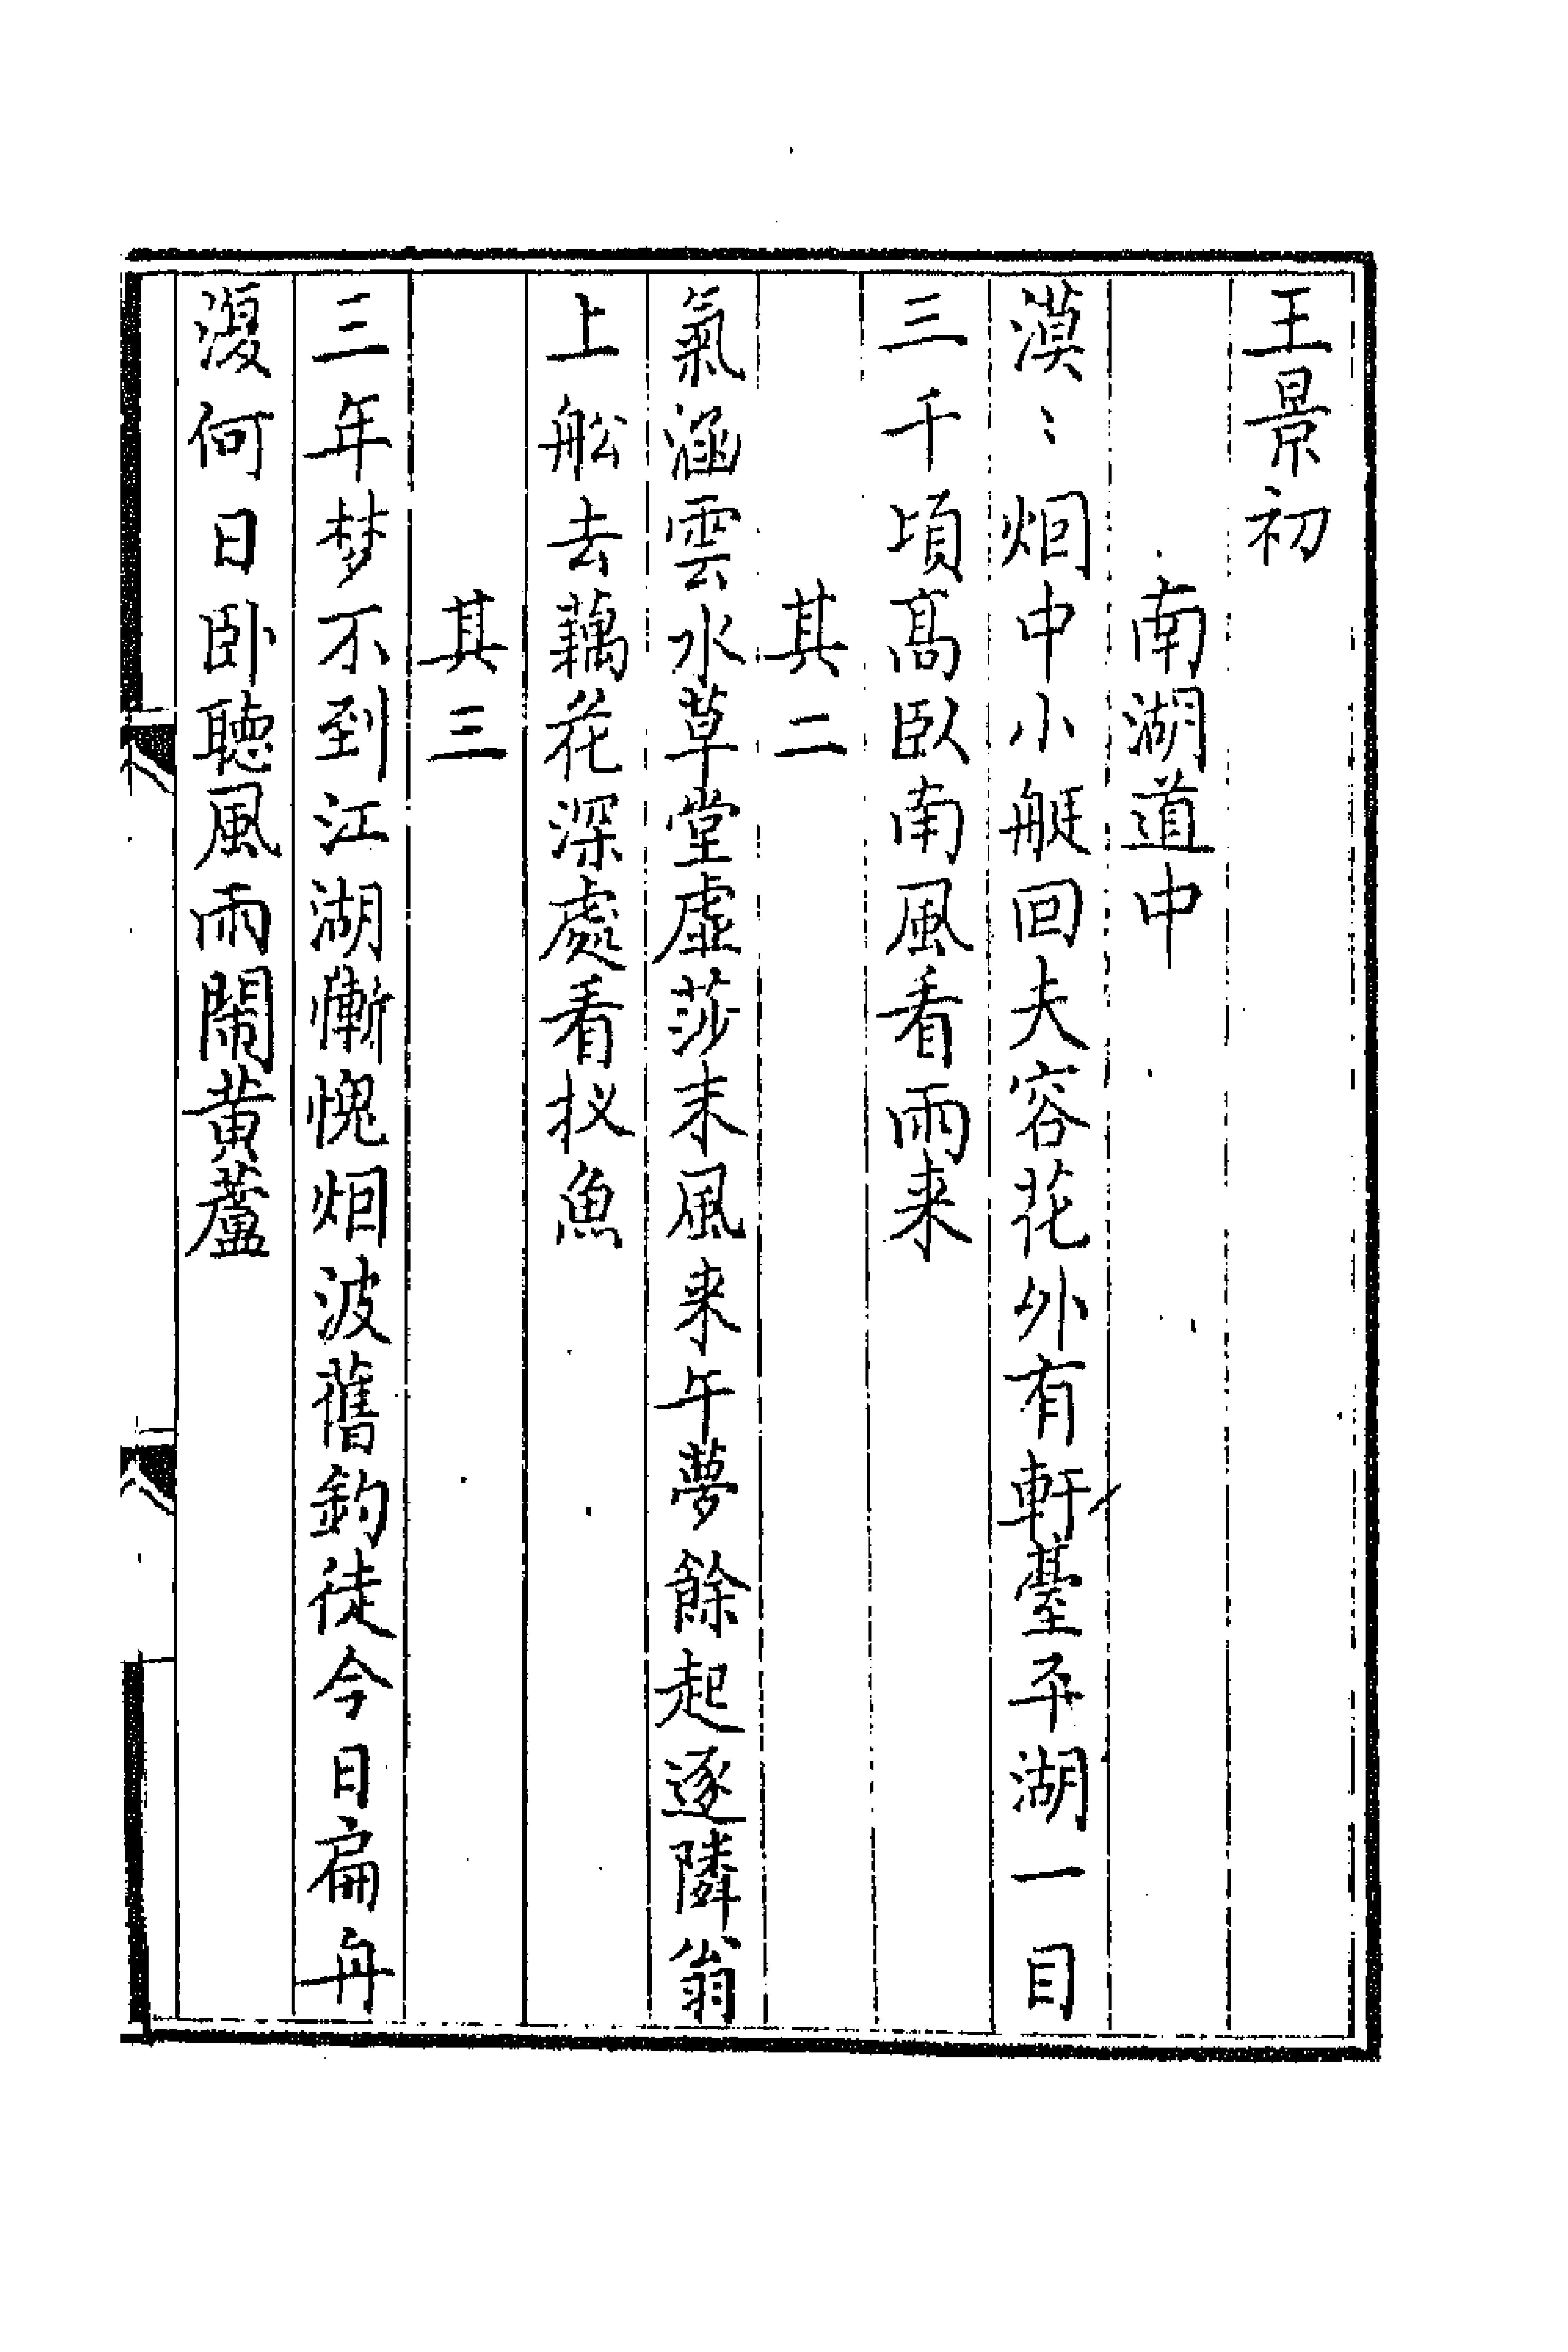 王景初
南湖道中
漠〻烟中小艇回夫容花外有軒臺平湖一目
三千頃髙臥南風看雨来
其二
氣涵雲水草堂虛莎末風来午夢餘起逐隣翁
上舩去藕花深處看扠魚
其三
三年梦不到江湖慚愧烟波舊釣徒今日扁舟
復何日卧聽風雨鬧黄蘆